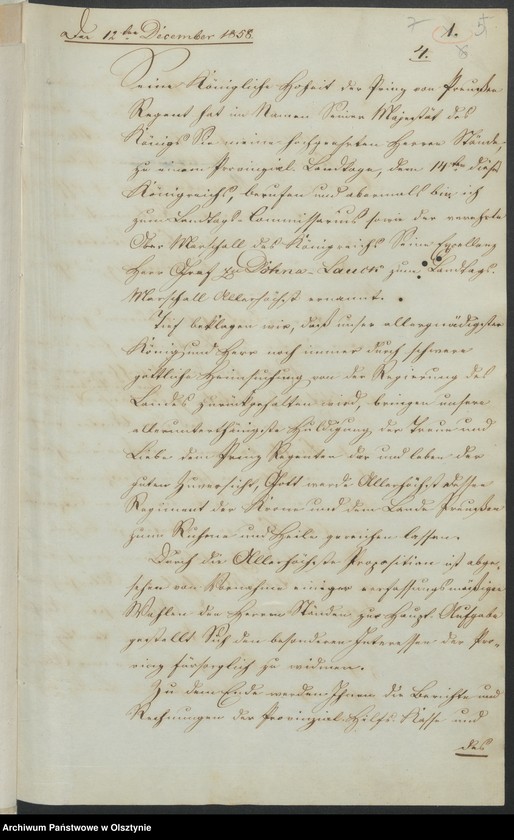 Den 12ten December 1858.
7 1. 5
4. 6
Seine Königliche Hoheit der Prinz von Preußen
Regent hat im Namen Seiner Majestät des
Königs Sie meine hochgeehrten Herren Stände,
zu einem Provinzial-Landtage, dem 14ten dieses
Königreichs, berufen und abermals bin ich
zum Landtags-Commissarius sowie der verehrte
Ober Marschall des Königreichs Seine Excellenz
Herr Graf zu Dohna-Lauck zum Landtags-
Marschall Allerhöchst ernannt.
Tief beklagen wir, daß unser allergnädigster
König und Herr noch immer durch schwere
göttliche Heimsuchung von der Regierung des
Landes zurückgehalten wird, bringen unsere
allerunterthänigste Huldigung der Treue und
Liebe dem Prinz Regenten dar und leben der
guten Zuversicht, Gott werde Allerhöchst dessen
Regiment der Krone und dem Lande Preußen
zum Ruhme und Heile gereichen lassen.
Durch die Allerhöchste Proposition ist abge-
sehen von Vornahme einiger verfassungsmäßiger
Wahlen den Herren Ständen zur Haupt-Aufgabe
gestellt Sich den besonderen Interessen der Pro-
vinz fürsorglich zu widmen.
Zu dem Ende werden Ihnen die Berichte und
Rechnungen der Provinzial-Hilfs-Kasse und
des
Archiwum Państwowe w Olsztynie